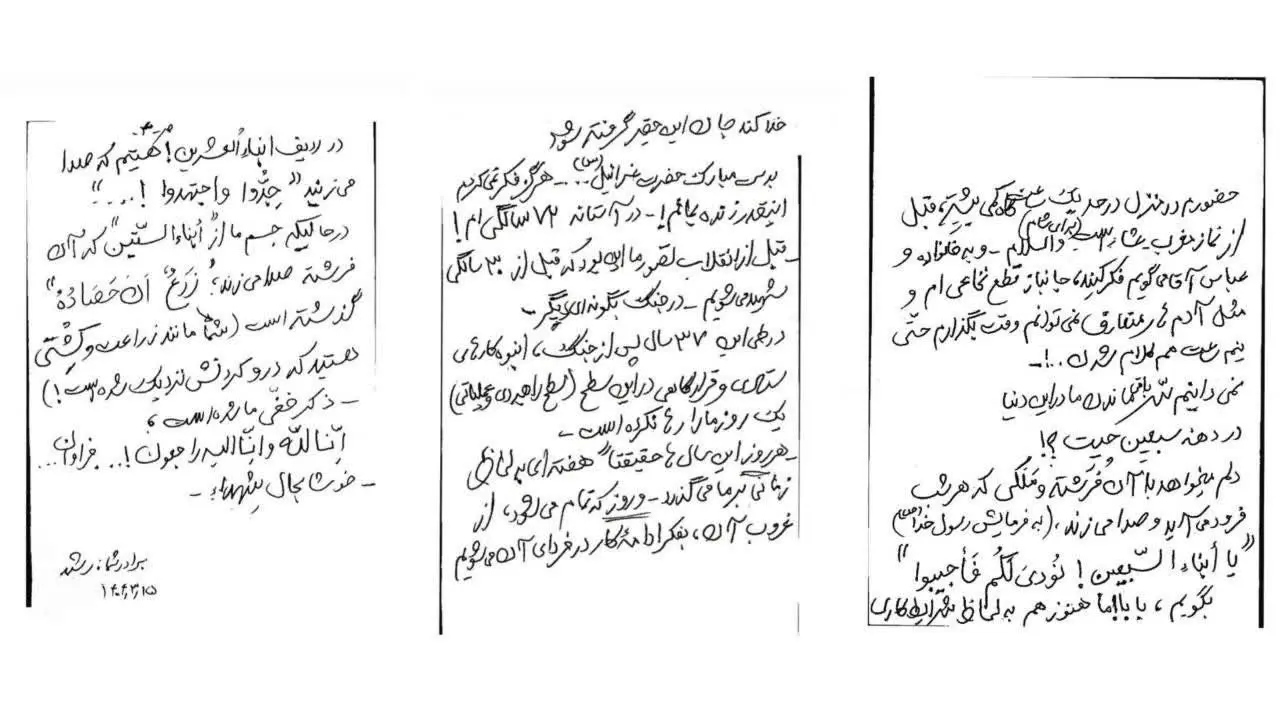 حضورم در منزل در حد یک ساعت گاه کمی بیشتر، قبل
از نماز مغرب عشاء است (برای شام) والسلام - و به خانواده و
عباس آقا می گویم فکر کنید، جانباز قطع نخاعی ام و
مثل آدم های متعارف نمی توانم وقت بگذارم حتّی
نیم ساعت هم کلام شدن..!-
نمی دانیم سرّ باقیماندن ما در این دنیا
در دهنه سبعین چیست ؟!
دلم میخواهد با آن فُرشته و مَلَکی که هر شب
فرود می آید و صدا می زند، (به فرمایش رسول خدا (ص))
"یا أبناء السّبعین! نُودیَ لَکُم فَأجیبوا"
بگویم، بابا! ما هنوز هم به لحاظ شرایط کاری
خدا کند جان این حقیر گرفته شود
بدست مبارک حضرت عزرائیل (س)... هرگز فکر نمی کردم
اینقدر زنده بمانم! - در آستانه ۷۲ سالگی ام!
- قبل از انقلاب تصور ما این بود که قبل از ۳۰ سالگی
شهید می شویم - در جنگ بگونه ای دیگر -
در طی این ۳۷ سال پس از جنگ، انبوه کارهای
ستادی و قرارگاهی در این سطح (سطح راهبردی و عملیاتی)
یک روز ما را رها نکرده است -
- هر روز این سال ها حقیقتاً هفته ای به لحاظ
زمانی بر ما می گذرد - و روز که تمام می شود، از
غروب آن، بفکر ادامه کار در فردای آن می شویم
در ردیف ابناءُ العشرین! هستیم که صدا
می زنید "جِدُّوا واجتهدوا !...."
در حالیکه جسم ما از "أبناء السّتّین" که آن
فرشته صدا می زند؛ "زَرعٌ اَن حَصادُهُ"
گذشته است (شما مانند زراعت و کِشتی
هستید که درو کردنش نزدیک شده است!)
- ذکر خفّی ما شده است؛
اِنّا لِلّه و اِنّا الیه راجعون!... فراوان...
- خوشا بحال شهداء -
برادر شما: رشید
۱۴۰۴٫۳٫۱۵